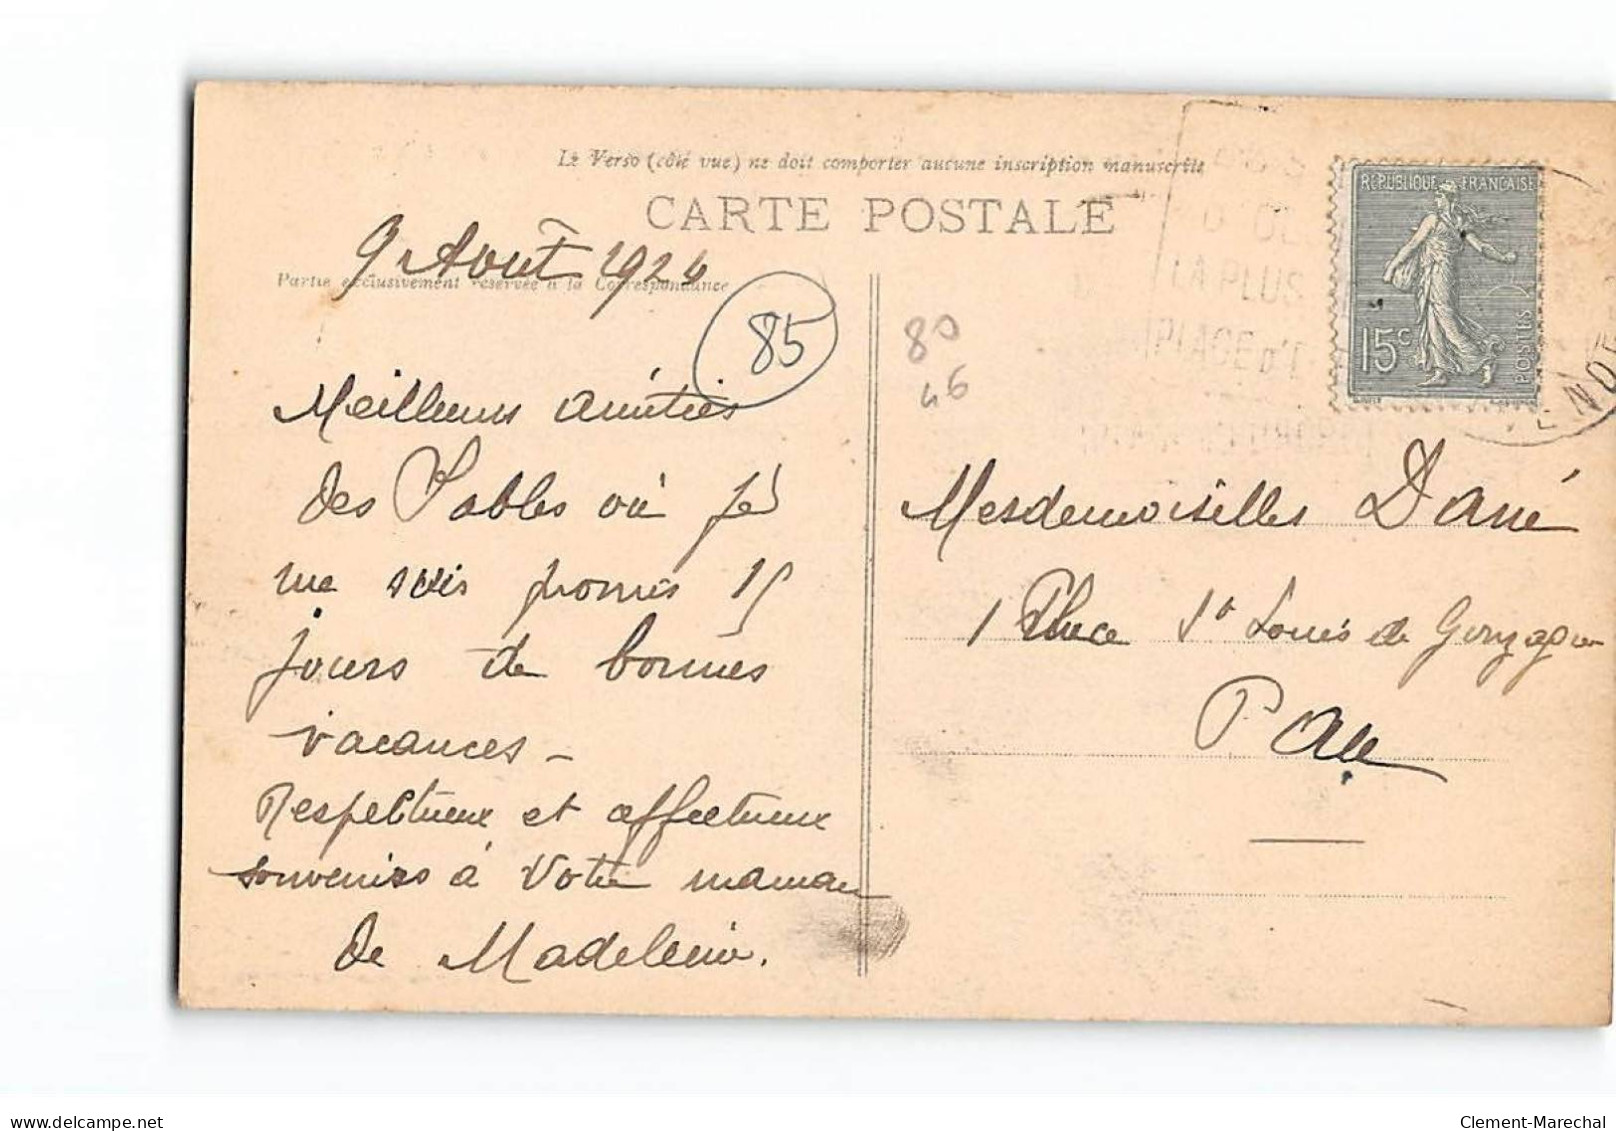 Le Verso (côté vue) ne doit comporter aucune inscription manuscrite
CARTE POSTALE
9 Août 1924
Partie exclusivement réservée à la Correspondance
85
80
46
Meilleures amitiés
des Sables où je
me suis promis 15
jours de bonnes
vacances -
Respectueux et affectueux
souvenirs à votre maman
de Madeleine.
LA PLUS
PLAGE d'
RÉPUBLIQUE FRANÇAISE
15c
POSTES
Mesdemoiselles
1 Place St Louis de Gonzague
Pau
delcampe.net
Clement-Marechal